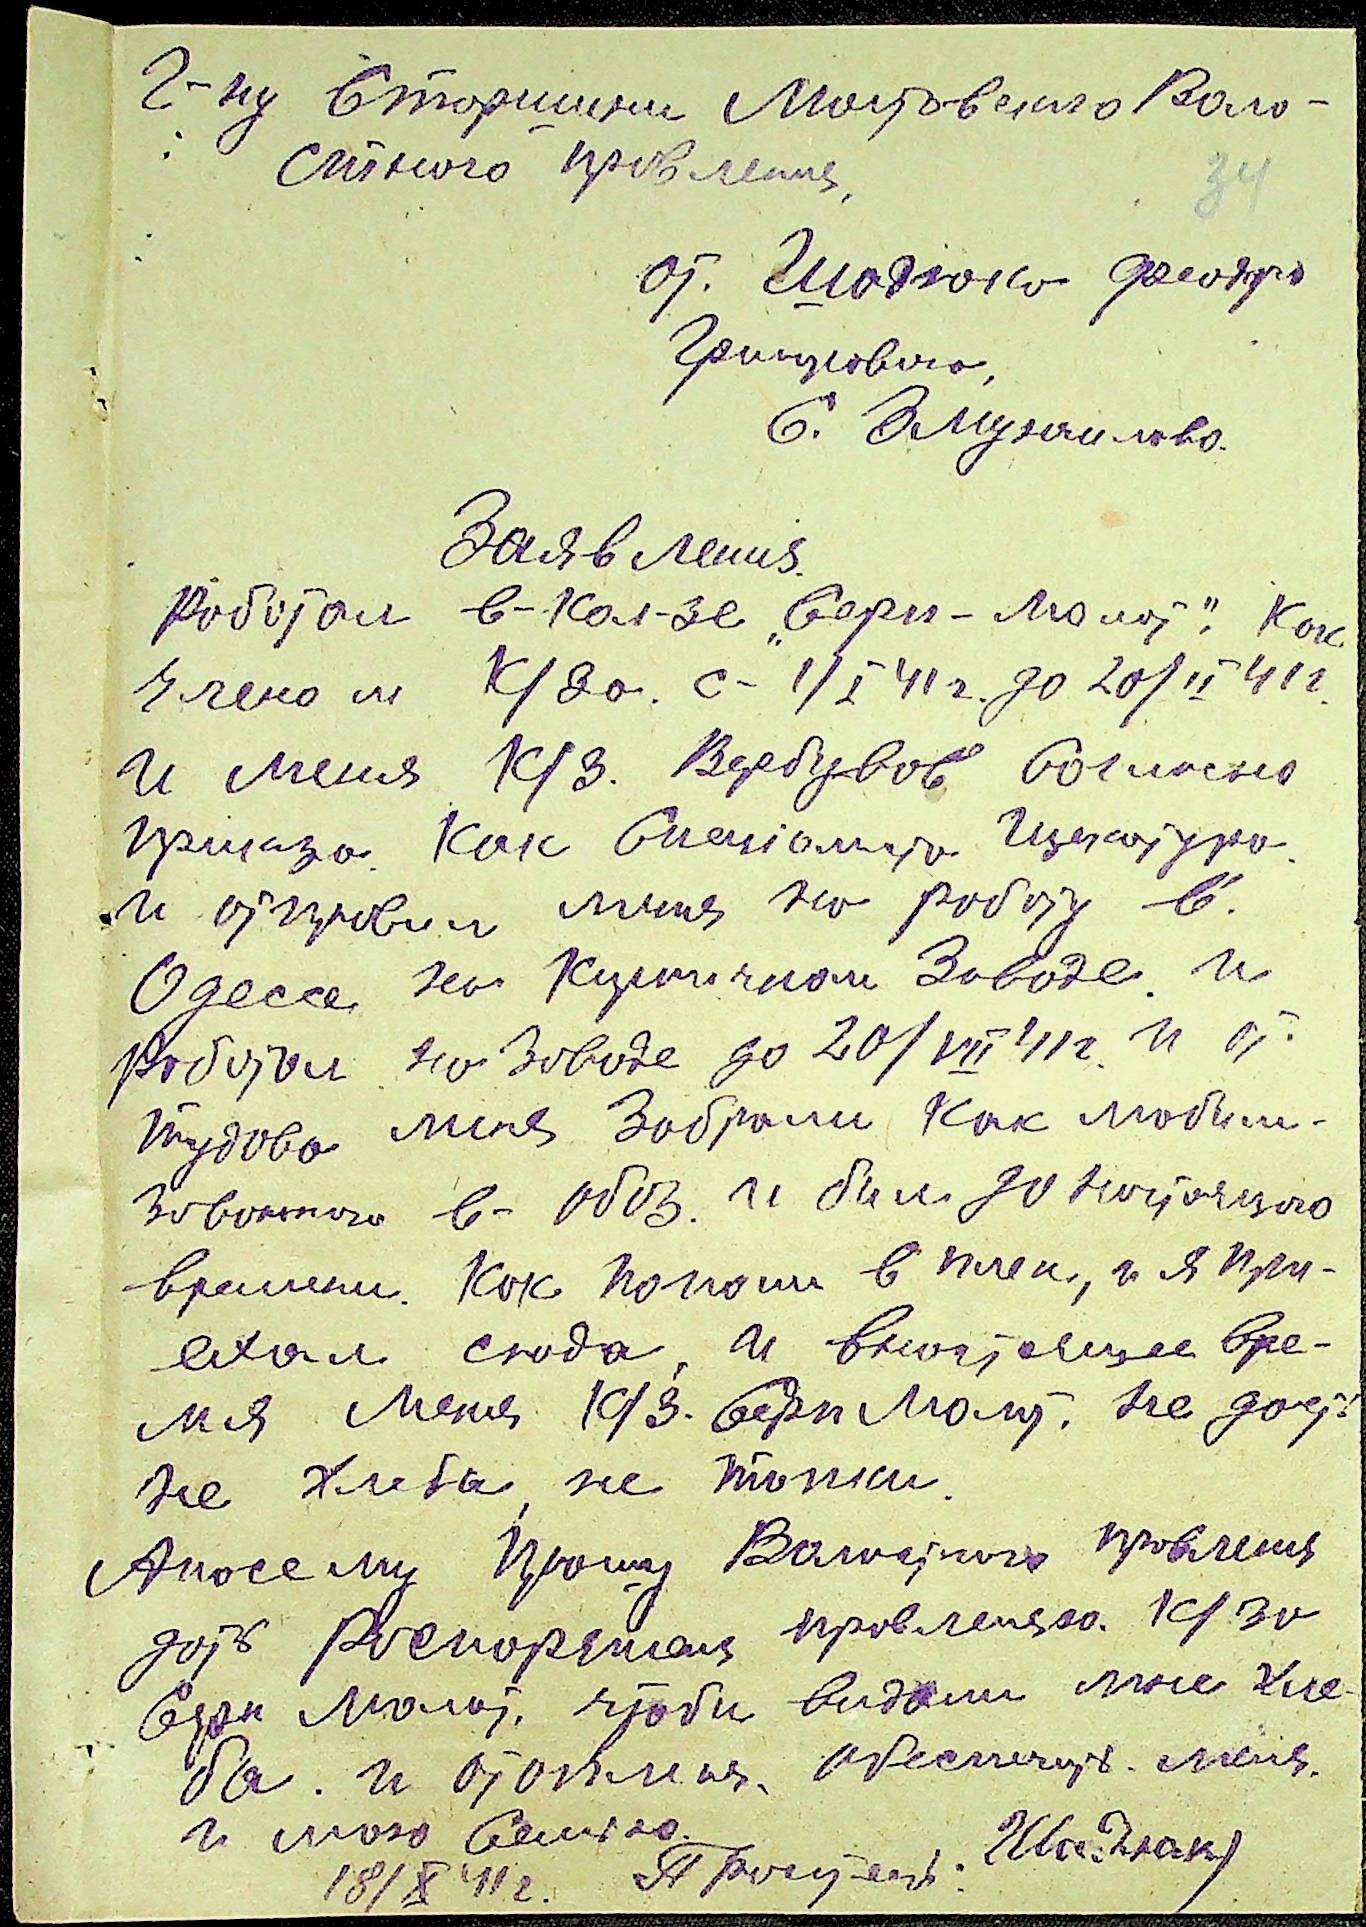 Г-ну Сторшини Мостовского Воло-
стного провления,
34
от. Шаднюка Феодра
Григуровича,
С. Змунаилова.
Заявления.
Роботал в-кол-зе „Серп-Молот". Как
членом К/за. с- 1/I 41 г. до 20/II 41 г.
и меня К/з. Вербувов согласно
приказа. Как Специалиста Щекотура.
и отправил меня на роботу в.
Одесса на Кирпичном Заводе. и
роботал на Заводе до 20/VII 41 г. и от.
тудова меня Забрали как мобили-
зованого в- обоз. и бил до настоящего
времени. Как попал в плен, и я при-
ехал сюда, и внастоящее вре-
мя меня К/з. Серп Молот. не дает
не хлеба, не топки.
Апосему Прошу Волостного провления
дать Роспоряженя провленяю. К/за
Серп Молот. чтоби видали мне хле-
ба. и отопленя. обеспечить. меня.
и мою Семю.
18/X 41 г. Проситель: Шаднюк